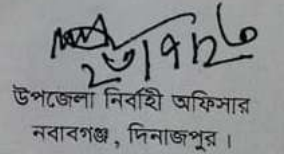 উপজেলা নির্বাহী অফিসার
নবাবগঞ্জ, দিনাজপুর।